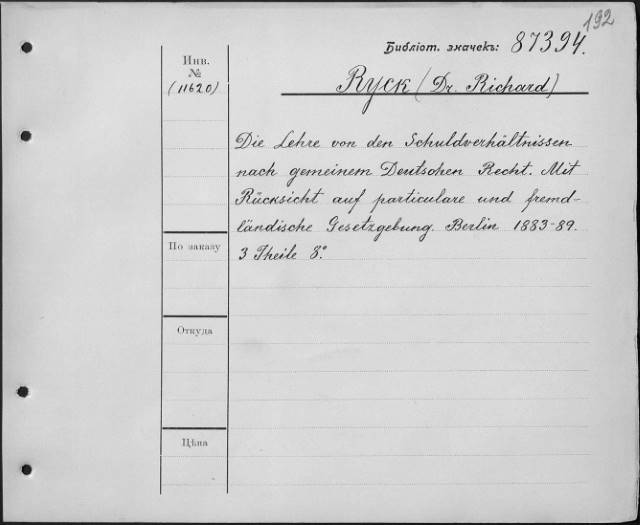 192
Библіот. значекъ: 87394.
Инв.
№
(11620)
Ryck (Dr. Richard)
Die Lehre von den Schuldverhältnissen
nach gemeinem Deutschen Recht. Mit
Rücksicht auf particulare und fremd-
ländische Gesetzgebung. Berlin 1883-89.
3 Theile 8.°
По заказу
Откуда
Цѣна